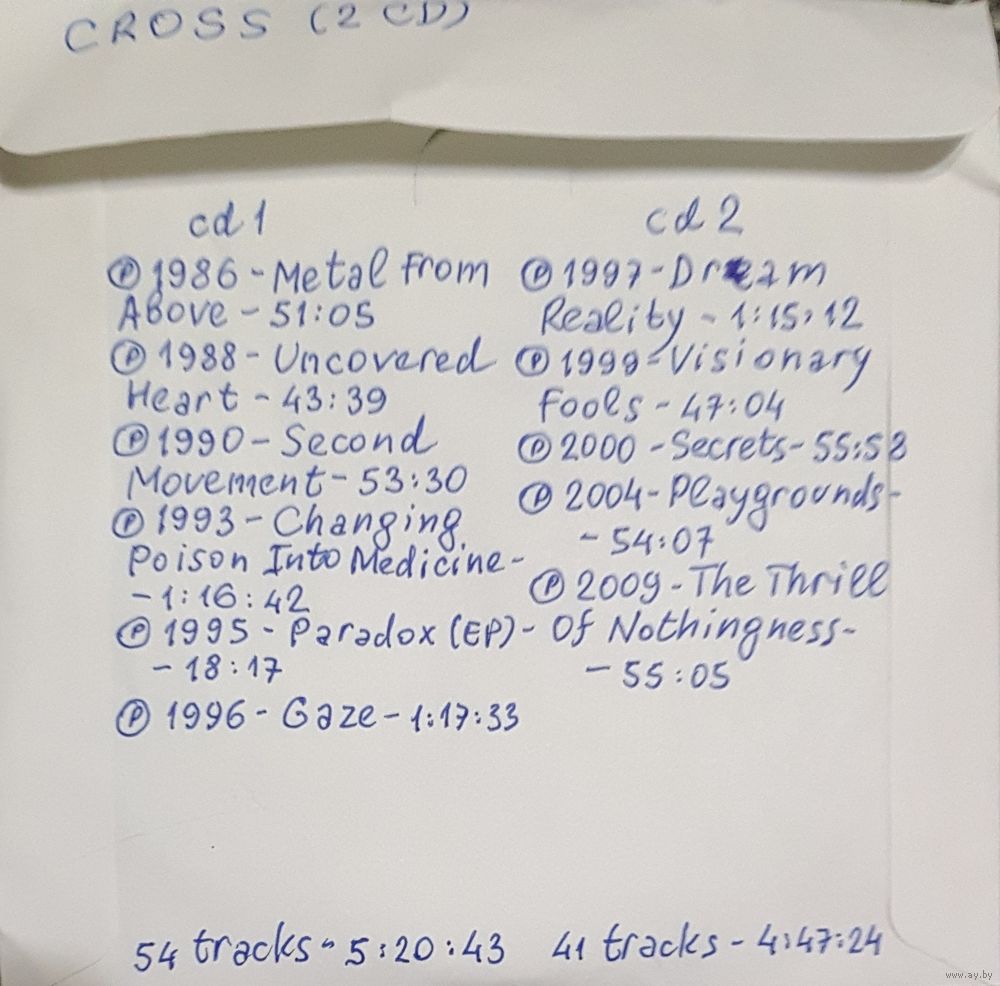 CROSS (2 CD)
cd 1
Ⓟ 1986 - Metal From
Above - 51:05
Ⓟ 1988 - Uncovered
Heart - 43:39
Ⓟ 1990 - Second
Movement - 53:30
Ⓟ 1993 - Changing
Poison Into Medicine -
- 1:16:42
Ⓟ 1995 - Paradox (EP) -
- 18:17
Ⓟ 1996 - Gaze - 1:17:33
54 tracks - 5:20:43
cd 2
Ⓟ 1997 - Dream
Reality - 1:15:12
Ⓟ 1999 - Visionary
Fools - 47:04
Ⓟ 2000 - Secrets - 55:58
Ⓟ 2004 - Playgrounds -
- 54:07
Ⓟ 2009 - The Thrill
Of Nothingness -
- 55:05
41 tracks - 4:47:24
www.ay.by